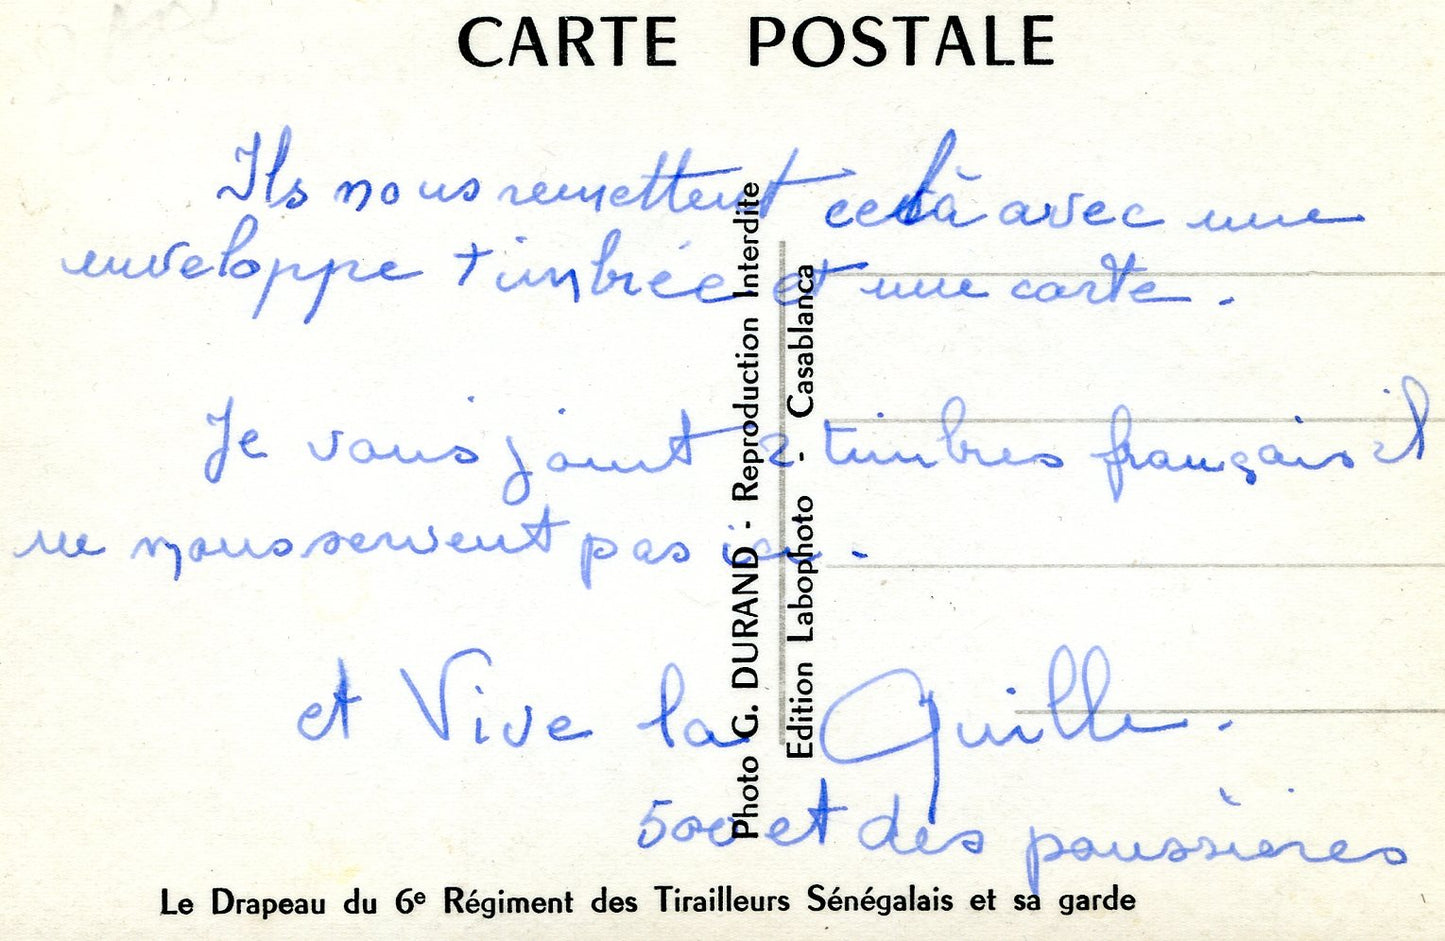 CARTE POSTALE
Ils nous remettent cela avec une
enveloppe timbrée et une carte.
Je vous joint 2 timbres français il
ne nous servent pas ici.
et Vive la Quille.
500 et des poussières
Photo G. DURAND - Reproduction Interdite
Edition Labophoto - Casablanca
Le Drapeau du 6e Régiment des Tirailleurs Sénégalais et sa garde